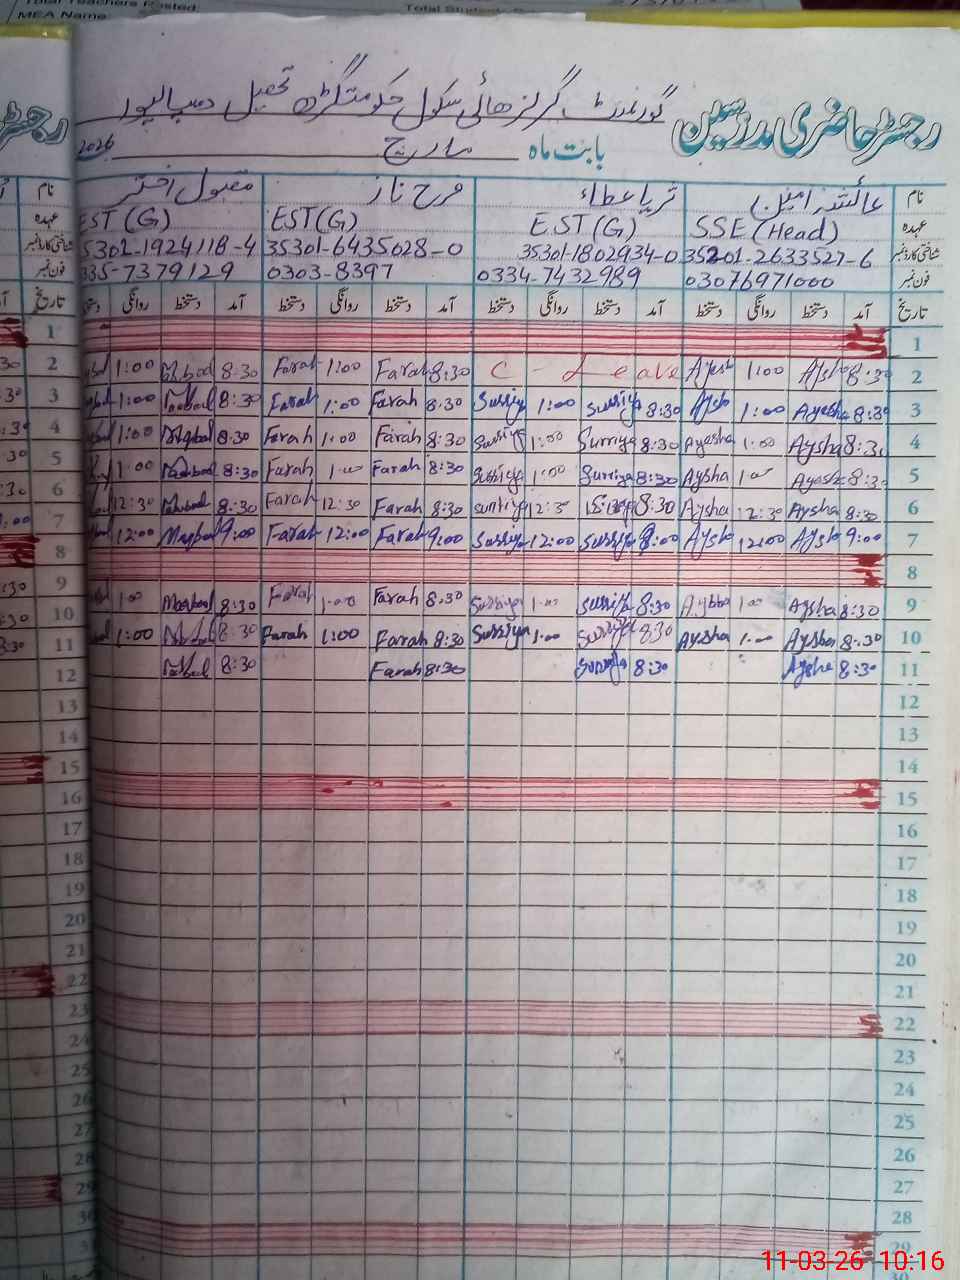 MEA Name:
گورنمنٹ گرلز ہائی سکول حکومتگڑھ تحصیل دیپالپور
رجسٹر حاضری مدرسین
بابت ماہ مارچ 2026
نام عائشہ امین ثریا عطاء فرح ناز مقبول اختر
عہدہ SSE (Head) EST (G) EST(G) EST(G)
شناختی کارڈ نمبر 35201-2633527-6 35301-1802934-0 35301-6435028-0 5302-1924118-4
فون نمبر 03076971000 0334-7432989 0303-8397 335-7379129
تاریخ آمد دستخط روانگی دستخط آمد دستخط روانگی دستخط آمد دستخط روانگی دستخط آمد دستخط روانگی
1
2 8:30 Aysha 1:00 Aysh C - Leave 8:30 Farah 1:00 Farah 8:30 1:00
3 8:30 Aysha 1:00 Aysh 8:30 Surriya 1:00 Surriya 8:30 Farah 1:00 Farah 8:30 1:00
4 8:30 Aysha 1:00 Aysha 8:30 Surriya 1:00 Surriya 8:30 Farah 1:00 Farah 8:30 1:00
5 8:30 Aysha 1:00 Aysha 8:30 Surriya 1:00 Surriya 8:30 Farah 1:00 Farah 8:30 1:00
6 8:30 Aysha 12:30 Aysha 8:30 12:30 Surriya 8:30 Farah 12:30 Farah 8:30 12:30
7 9:00 Aysh 12:00 Aysh 9:00 Surriya 12:00 Surriya 9:00 Farah 12:00 Farah 9:00 Maqbool 12:00
8
9 8:30 Aysha 1:00 8:30 Surriya 1:00 Surriya 8:30 Farah 1:00 Farah 8:30 Maqbool 1:00
10 8:30 Aysha 1:00 Aysha 8:30 Surriya 1:00 Surriya 8:30 Farah 1:00 Farah 8:30 1:00
11 8:30 Aysha 8:30 Surriya 8:30 Farah 8:30
12
13
14
15
16
17
18
19
20
21
22
23
24
25
26
27
28
29
11-03-26 10:16